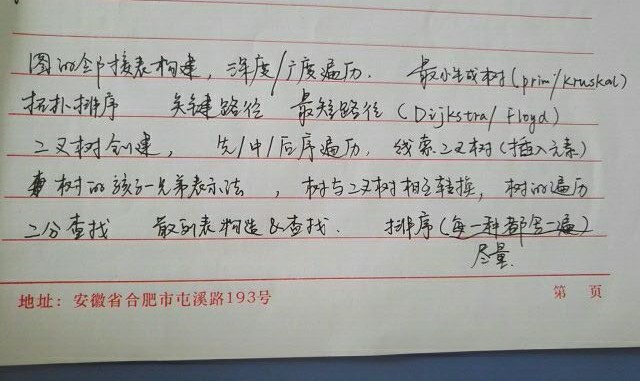 图的邻接表构建，深度/广度遍历. 最小生成树(prim/kruskal)
拓扑排序 关键路径 最短路径 (Dijkstra/Floyd)
二叉树创建， 先/中/后序遍历. 线索二叉树(插入元素)
树的孩子-兄弟表示法 ， 树与二叉树相互转换， 树的遍历
二分查找 散列表构造&查找. 排序(每一种都写一遍)
尽量.
地址：安徽省合肥市屯溪路193号 第 页